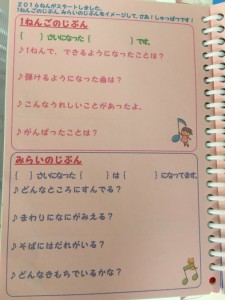 2016ねんがスタートしました。
1ねんごのじぶん、みらいのじぶんをイメージして、さあ！しゅっぱつです！
1ねんごのじぶん
【　】さいになった【　　　】です。
♪1ねんで、できるようになったことは？
♪弾けるようになった曲は？
♪こんなうれしいことがあったよ。
♪がんばったことは？
みらいのじぶん
【　】さいになった【　　】は【　　　】になってます。
♪どんなところにすんでる？
♪まわりになにがみえる？
♪そばにはだれがいる？
♪どんなきもちでいるかな？